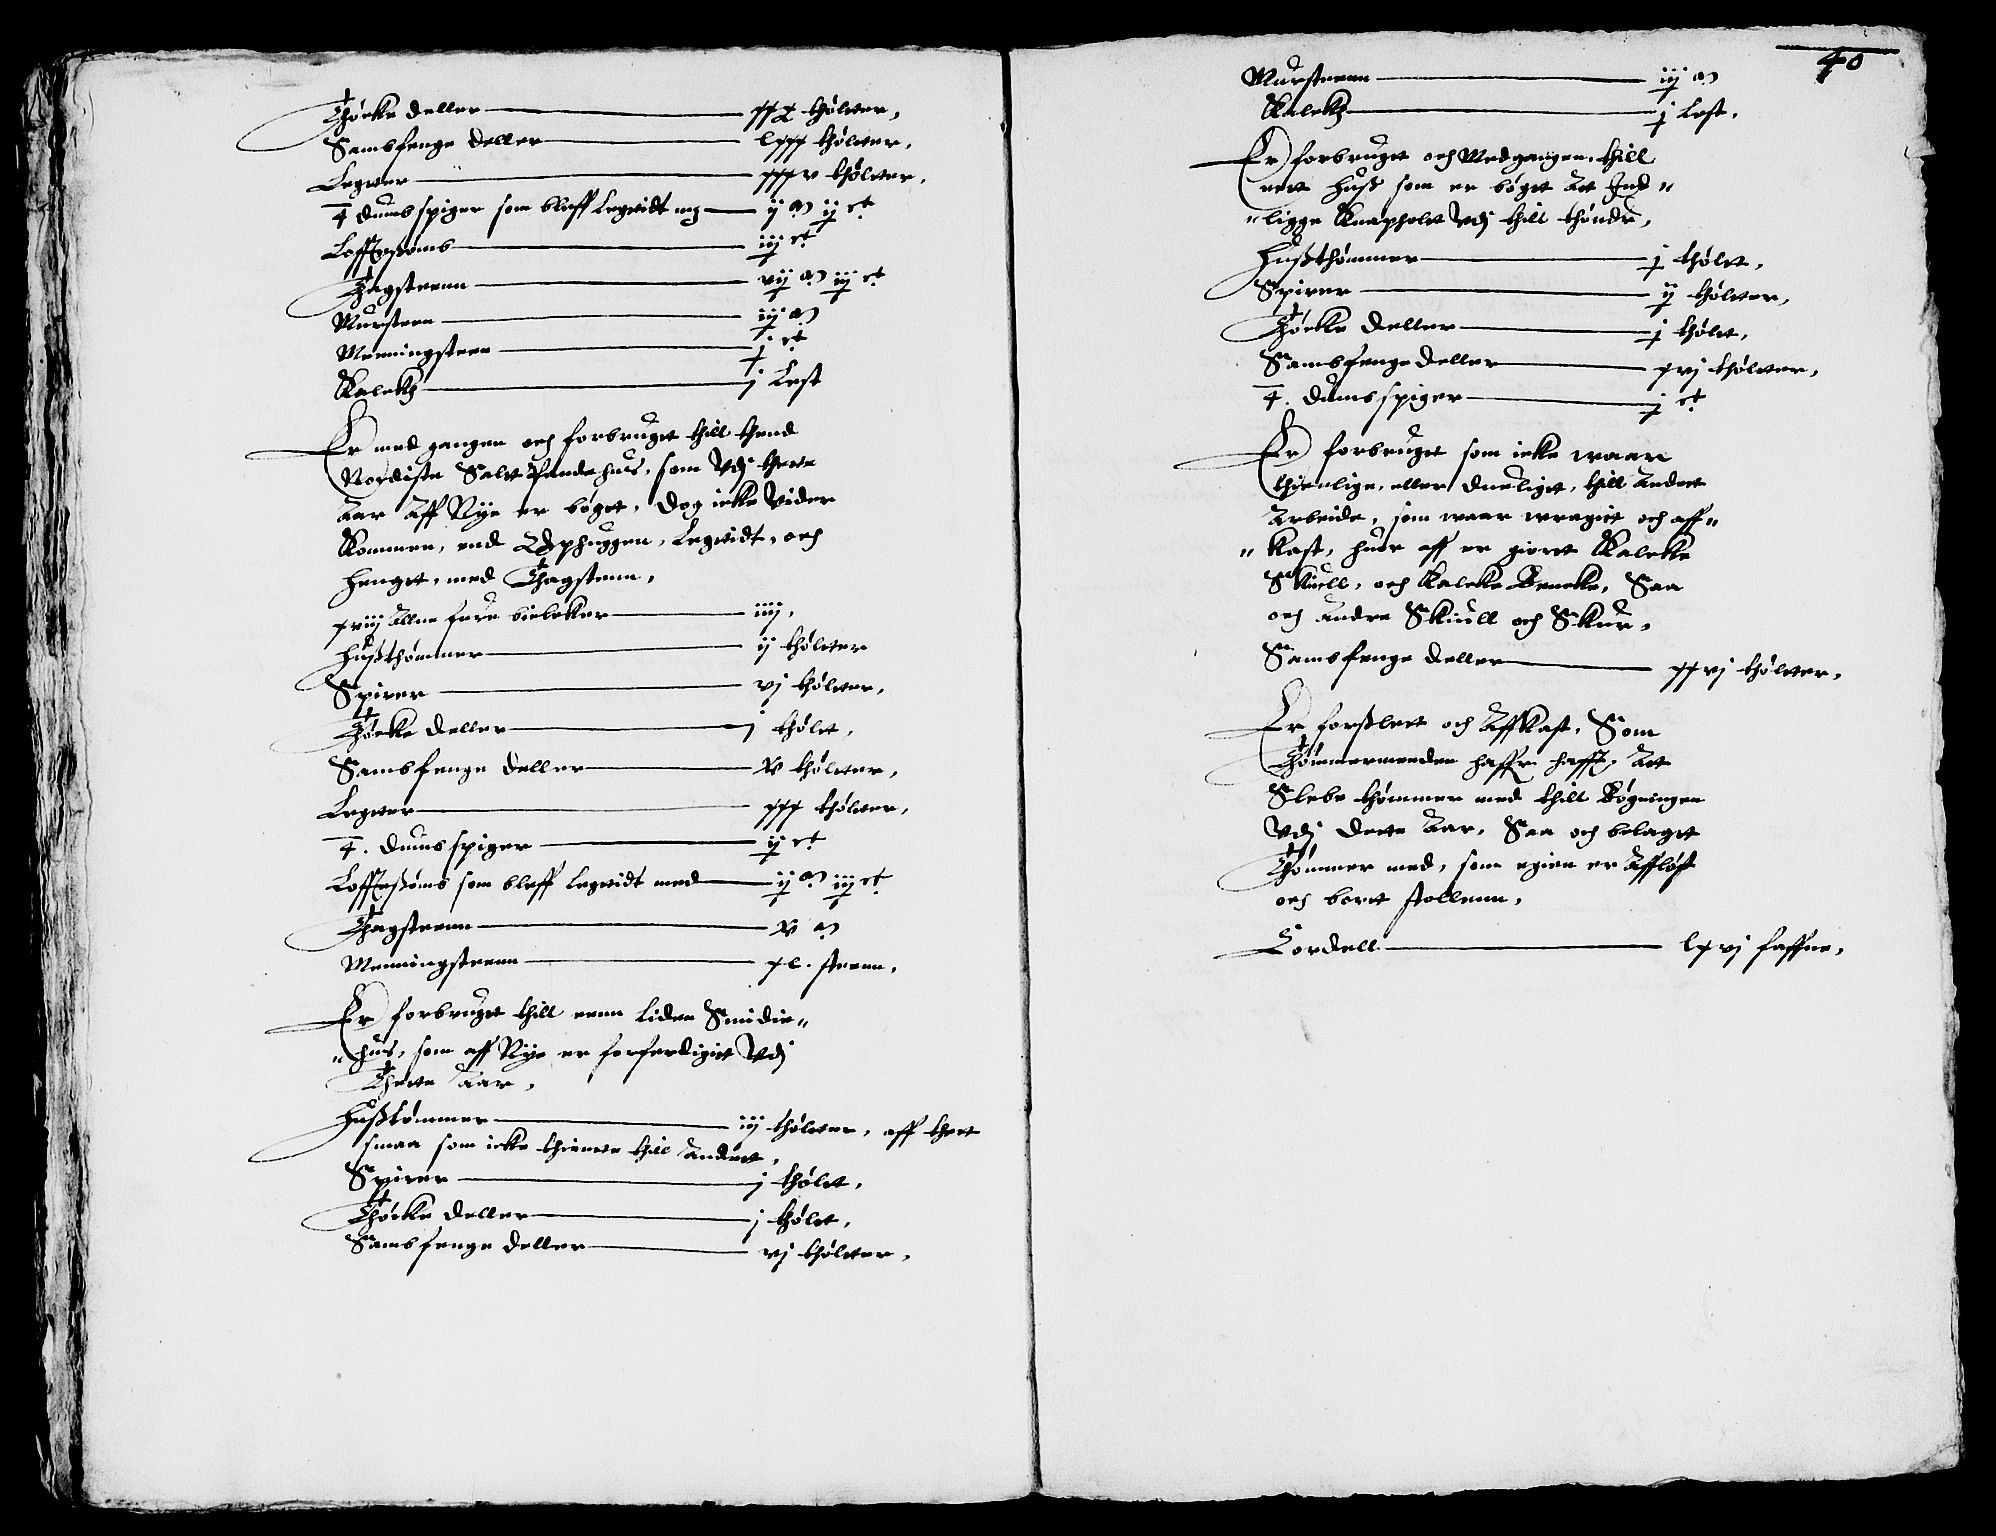 Thöcke deller — xxx thölter,
Sambsfenge deller — lxxx thölter,
Legter — xxxv thölter,
4 dumbspiger som bleff Legtidt mz — ij m ij ct
Lofftzsömb — iiij ct
Thagsteenn — vij m iij ct
Mursteen — iij m
Menningsteen — j ct
Kalck — j Lest
Er medgangen och forbruget thill thend
Nordiste Saltpandehus, som Vdj thette
Aar Aff Nye er bögt, Dog icke vider
Kommen, end Ophuggen, Legtidt, och
Hengt, med Thagstenn,
xviij Allne fure bielcker — iiij,
Husthömmer — ij thölter
Spirer — vj thölter,
Thöcke deller — j thölt,
Sambsfenge deller — xv thölter,
Legter — xxx thölter,
4. dumbspiger — ij ct
Lofftzsömb som bleff Legtidt med — ij m iij ct
Thagsteenn — xv m
Menningsteenn — xl. steenn,
Er forbruget thill eenn liden Smidie„
„hus, som aff Nye er forferdiget Vdj
Thette Aar,
Hustömmer — iij thölter, aff thet
smaa som icke thiente thill Andet,
Spirer — j thölt,
Thöcke deller — j thölt,
Sambsfenge deller — vj thölter,
40
Mursteenn — iij m
Kalck — j Lest,
Er forbruget och Medgangen, thill
eett Huss som er bögt At Ind„
„ligge Knapholt Vdj thill thönde,
Husthömmer — j thölt,
Spirer — ij thölter,
Thöcke deller — j thölt,
Sambsfenge deller — xvj thölter,
4. dumbspiger — j ct
Er forbruget som icke waar
thienlige, eller dueligt, thill Andet
Arbeide, som waar wraget och aff„
„kast, huor aff er giort Kalcke
Skiull, och Kalcke Bencke, Saa
och Andre Skiull och Skur,
Sambsfenge deller — xxvj thölter,
Er forslett och Affkast, Som
Thömmermenden haffr hafft, At
Slebe thömmer med thill Bögningen
Vdj Dette Aar, Saa och belagt
Thömmer med, som egien er Afflöst
och bort stollenn,
Cordell — lxvj faffne,